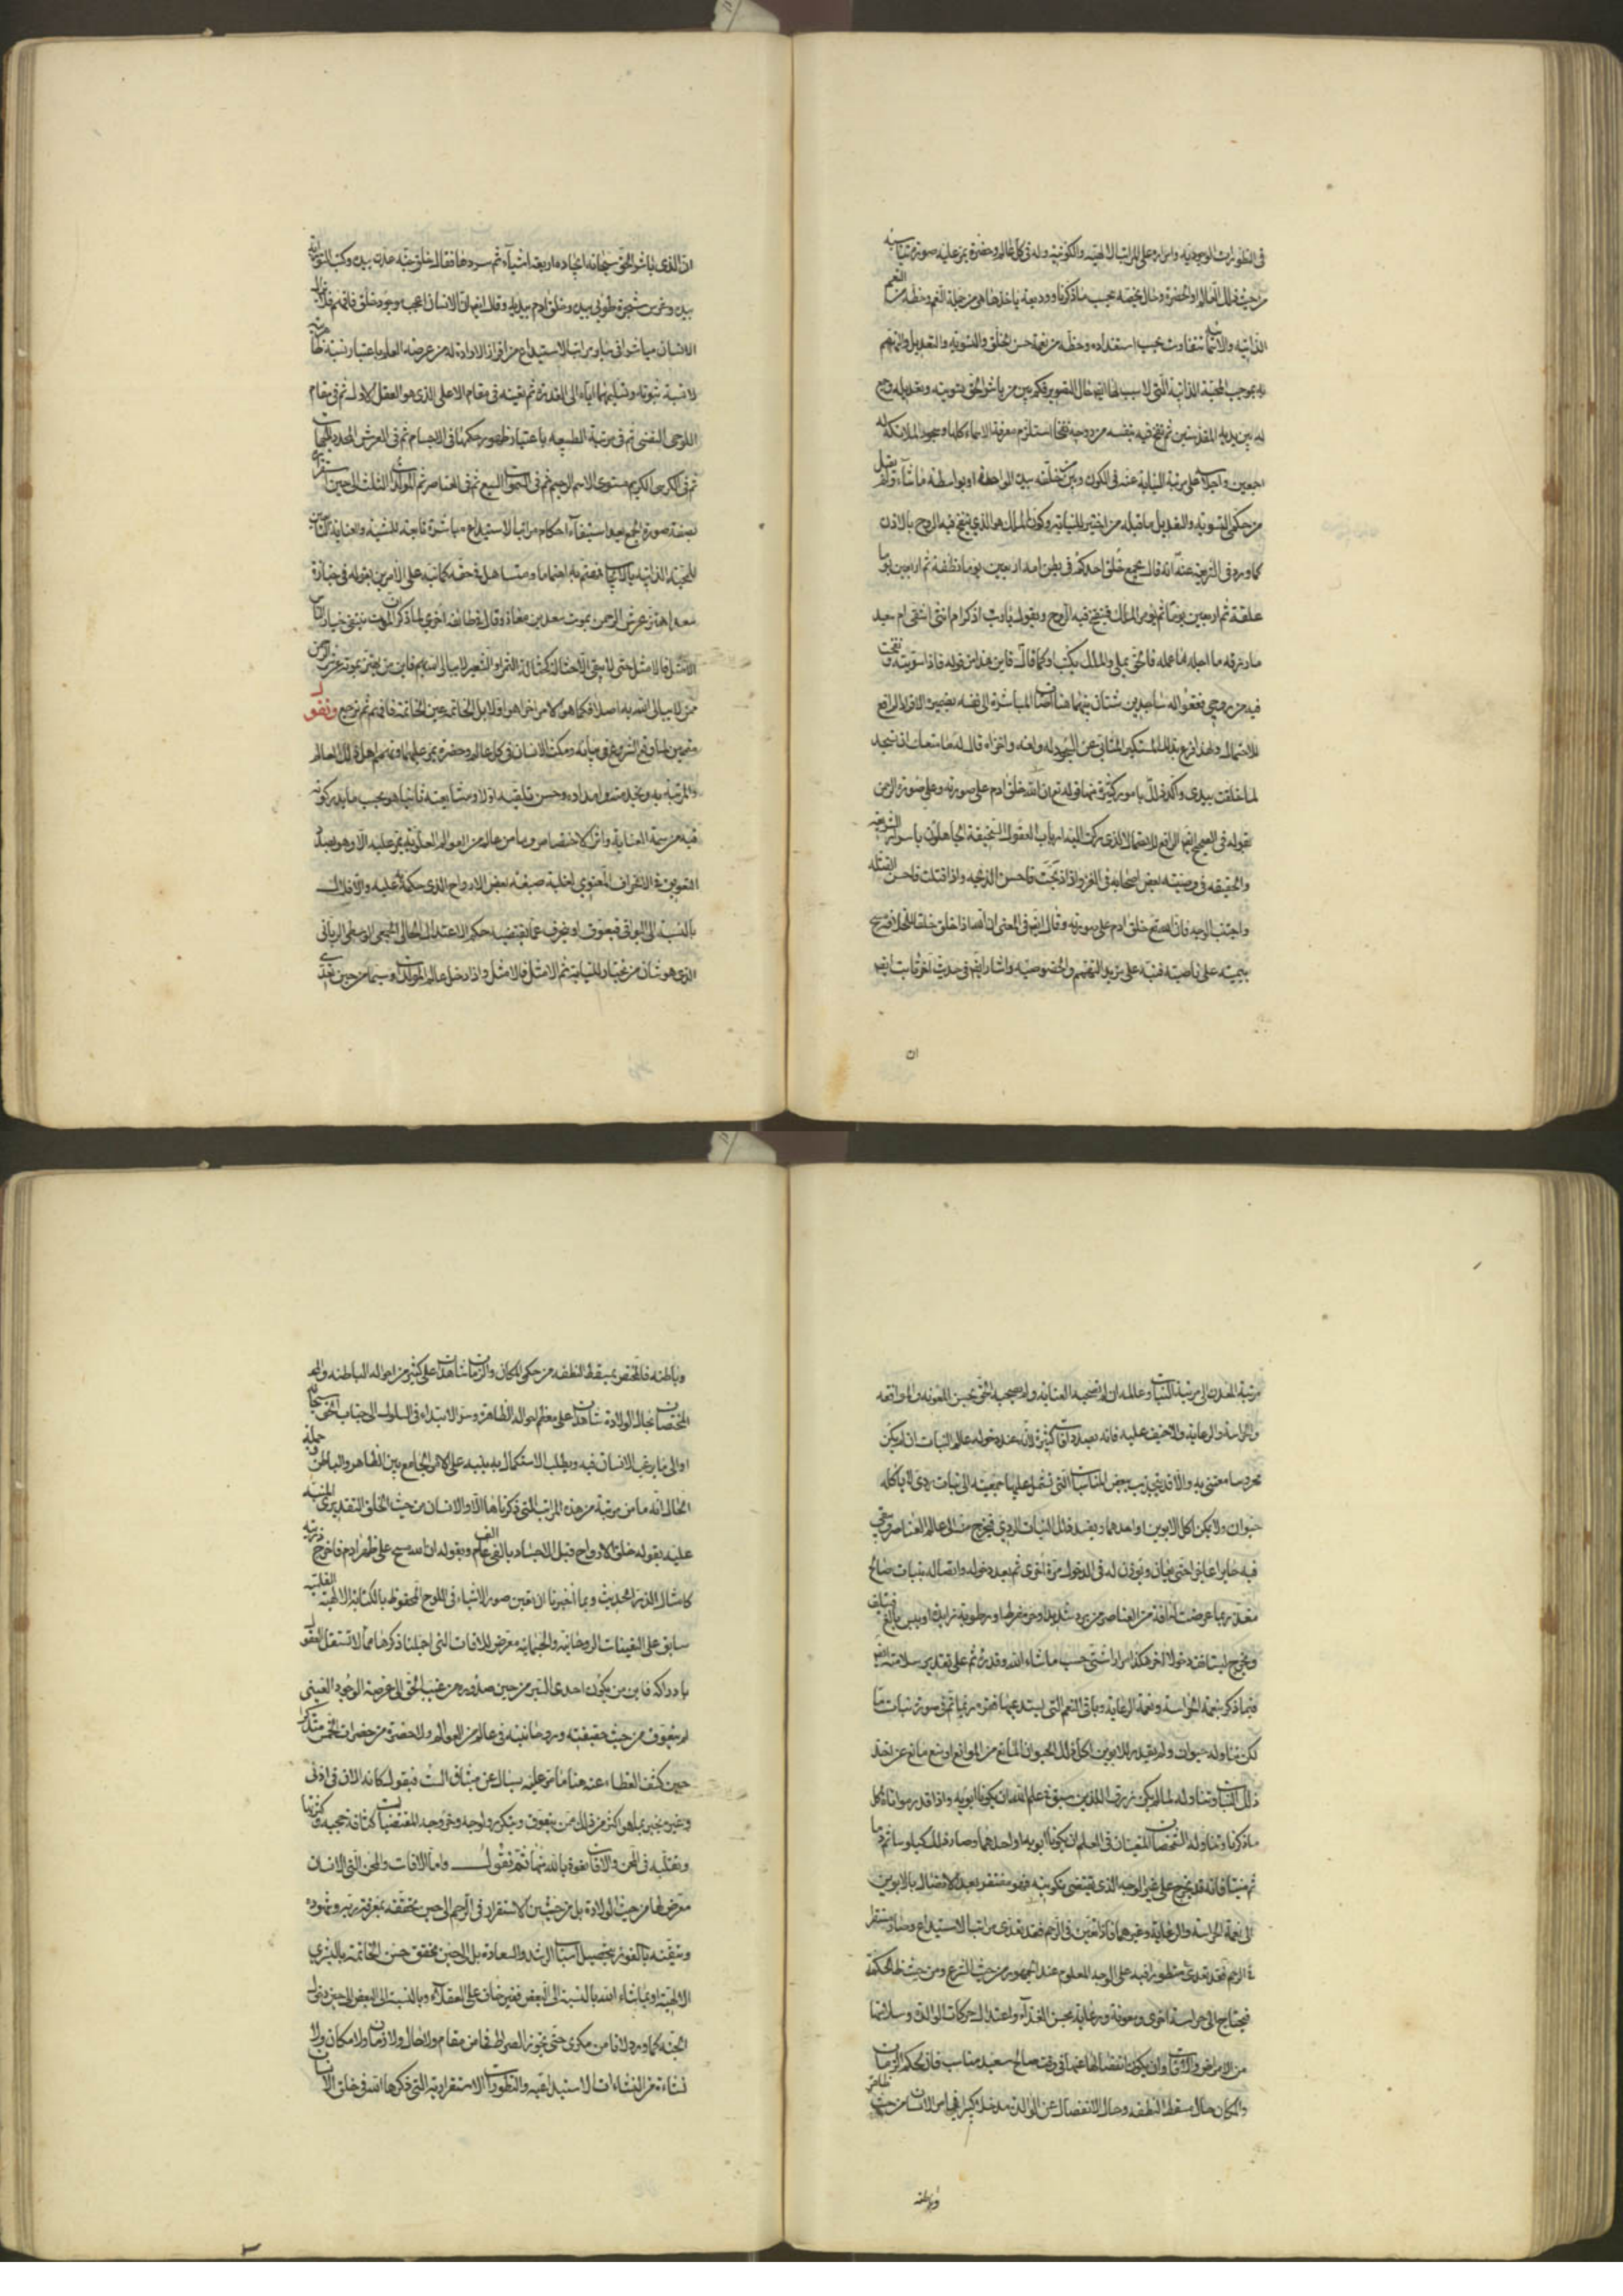 في التطورات الوجودية وامراره على المراتب الالهية والكونية وله في كل عالم وحضرة يمر عليه صورة تناسبه
من حيث ذلك العالم او الحضرة وحال يخصه بحسب ما ذكرنا ووديعة ياخذها هي من جملة النعم وحظه من النعم
الذاتية والاسمائية متفاوت بحسب استعداده وحظه من نعمة حسن الخلق والتسوية والتعديل والتهمم
به بموجب المحبة الذاتية التي لا سبب لها ايضا حال التصوير فكم بين من باشر الحق تسويته وتعديله وجمع
له بين يديه المقدستين ثم نفخ فيه بنفسه من روحه نفخا استلزم معرفة الاسماء كلها وسجود الملائكة له
اجمعين واجلاسه على مرتبة النيابة عنه في الكون وبين من خلقه بيده الواحدة او بواسطة ما شاء ولم يقبل
من حكمي التسوية والتعديل ما قبله من اختير للنيابة وكون الملك هو الذي ينفخ فيه الروح بالاذن
كما ورد في الشريعة عنه انه قال يجمع خلق احدكم في بطن امه اربعين يوما نطفة ثم اربعين يوما
علقة ثم اربعين يوما ثم يؤمر الملك فينفخ فيه الروح ويقول يا رب اذكر ام انثى اشقي ام سعيد
ما رزقه ما اجله ما عمله فالحق يملي والملك يكتب او كما قال فاين هذا من قوله فاذا سويته ونفخت
فيه من روحي فقعوا له ساجدين شتان بينهما هنا اضاف المباشرة الى نفسه بضمير الافراد الرافع
للاحتمال ولهذا قرع بذلك المستكبر المتأبي عن السجود له ولعنه واخزاه قال له ما منعك ان تسجد
لما خلقت بيدي واكد ذلك بامور كثيرة منها قوله ان الله خلق ادم على صورته وعلى صورة الرحمن
بقوله في الصحيح ايضا الرافع للاحتمال الذي ركن اليه ارباب العقول السخيفة الجاهلون باسرار الشريعة
والحقيقة في وصيته بعض اصحابه في الغزو اذا ذبحت فاحسن الذبحة واذا قتلت فاحسن القتلة
واجتنب الوجه فان الله خلق ادم على صورته وقال ايضا في المعنى ان الله اذا خلق خلقا للخلافة مسح
بيمينه على ناصيته فنبه على مزيد التهمم والخصوصية واشار ايضا في حديث اخر ثابت ايضا
ان
ان الذي باشر الحق سبحانه ايجاده اربعة اشياء ثم سردها فقال خلق جنة عدن بيده وكتب التوراة
بيده وغرس شجرة طوبى بيده وخلق ادم بيديه وقال ايضا ان الانسان اعجب موجود خلق فافهم فلا يزال
الانسان مباشرا في سائر مراتب الاستيداع من افراز الارادة له من عرصة العلم باعتبار نسبة ظاهرية
لا نسبة ثبوته وتسليمها اياه الى القدرة ثم تعينه في مقام الاعلى الذي هو العقل الاول ثم في مقام
اللوحي النفسي ثم في مرتبة الطبيعة باعتبار ظهور حكمها في الاجسام ثم في العرش المحدد للجهات
ثم في الكرسي الكريم مستوى الاسم الرحيم ثم في السموات السبع ثم في العناصر ثم المولدات الثلث الى حين استقراره
بصفة صورة الجمع بعد استيفاء احكام مراتب الاستيداع مباشرة تابعة للمشية والعناية
للمحبة الذاتية بالايجاد فمعتم به اهتماما ومتساهل في حقه كما نبه على الامرين بقوله في جنازة
سعد اهتز عرش الرحمن بموت سعد بن معاذ وقال في طائفة اخرى لما ذكر ان الموت ينتقي خيار الناس
الامثل فالامثل حتى لا يبقى الا حثالة كحثالة التمر او الشعير لا يبالي الله بهم فاين من يهتز لموته عرش الرحمن
ممن لا يبالي الله به اصلا فكما هو الامر اخرا هو اولا بل الخاتمة عين الخاتمة فافهم ثم نرجع ونقول
متممين لما وقع الشروع في بيانه ومكث الانسان في كل عالم وحضرة يمر عليهما وتهمم اهل ذلك العالم
والمرتبة به وبخدمته وامداده وحسن تلقيه اولا ومشايعته ثانيا هو بحسب ما يدركونه
فيه من سمة العناية واثر الاختصاص وما من عالم من العوالم العلوية يمر عليه الا وهو بصدد
التعويق في الانحراف المعنوي لغلبة صبغة بعض الارواح الذي حكمه عليه والافلاك
بالنسبة الى البواقي فيعوق او ينحرف عما يقتضيه حكم الاعتدال الحالي الجمعي الوسطي الرباني
الذي هو شان من يختار للنيابة ثم الامثل فالامثل واذا دخل عالم المولدات وسيما من حين تعدى
مرتبة المعدن الى مرتبة النبات وعالمه ان لم تصحبه العناية ولم يصحبه الحق بحسن المعونة والموافقة
والحراسة والرعاية والاخيف عليه فانه بصدد افات كثيرة لانه عند دخوله عالم النبات ان لم يكن
محروسا معتنى به والا قد ينجذب ببعض المناسبات التي تشتمل عليها جمعيته الى نبات ردي لا ياكله
حيوان ولا يمكن اكل الابوين او احدهما ويفسد ذلك النبات الردي فيخرج منه الى عالم العناصر ويبقى
فيه حائرا عاجزا حتى يعان ويؤذن له في الدخول مرة اخرى ثم بعد دخوله واتصاله بنبات صالح
مغذ ربما عرضت له افة من العناصر من برد شديد او حر مفرط او رطوبة زايدة او يبس بالغ فيتلف
ويخرج ليستانف دخولا اخر هكذا مرارا شتى حسب ما شاء الله وقدره ثم على تقدير سلامته ايضا
فيما ذكر بنعمة الحراسة ونعمة الرعاية وباقي النعم التي يستدعيها فقره ربما تم في صورة نبات ما
لكن تناوله حيوان ولم يقدر للابوين اكل ذلك الحيوان لمانع من الموانع او منع مانع عن اخذ
ذلك النبات وتناوله لما لم يكن من رزق اللذين سبق في علم الله ان يكونا ابويه واذا قدر مواتاة كل
ما ذكرنا وتناوله الشخصان المتعينان في العلم ان يكونا ابويه او احدهما وصار ذلك كيلوسا ثم دما
ثم منيا فانه قد يخرج على غير الوجه الذي يقتضي تكوينه فهو مفتقر بعد الاتصال بالابوين
الى نعمة الحراسة والرعاية وغيرهما فاذا تعين في الرحم فقد تعدى مراتب الاستيداع وصار مستقرا
في الرحم فيحتد تعدي متطورا فيه على الوجه المعلوم عند الجمهور من حيث الشرع ومن حيث ظاهر الحكمة
فيحتاج الى حراسة اخرى ومعونة ورعاية بحسن الغذاء واعتدال حركات الوالدة وسلامتها
من الامراض والافات وان يكون انفصالها عنها في وقت صالح سعيد مناسب فان لحكم الزمان
والمكان حال مسقط النطفة وحال الانفصال عن الوالدة مدخلا كبيرا في امر الانسان من حيث ظاهره
وباطنه
وباطنه فالمختص بمسقط النطفة من حكمي المكان والزمان شاهدان على كثير من احواله الباطنة
المختصان بحال الولادة شاهدان على معظم احواله الظاهرة وسر الابتداء في السلوك الى جناب الحق سبحانه
او الى ما يرغب الانسان فيه ويطلب الاستكمال به ينبه على الامر الجامع بين الظاهر والباطن وجملة
الحال انه ما من مرتبة من هذه المراتب التي ذكرناها الا والانسان من حيث الخلق التقديري المنبه
عليه بقوله خلق الارواح قبل الاجساد بالفي الف عام وبقوله ان الله مسح على ظهر ادم فاخرج ذريته
كامثال الذر الحديث وبما اخبرنا ان تعين صور الاشياء في اللوح المحفوظ بالكتابة الالهية القلمية
سابق على التعينات الروحانية والجسمانية معرض للافات التي اجملنا ذكرها مما لا تستقل العقول
بادراكه فاين من يكون احدي السير من حين صدوره من غيب الحق الى عرصة الوجود العيني
لم يتعوق من حيث حقيقته وروحانيته في عالم من العوالم ولا حضرة من حضرات الخمس متذكرا
حين كشف الغطاء عنه هنا ما مر عليه يسال عن ميثاق الست فيقول كانه الان في اذني
وغيره يخبر بما هو اكثر من ذلك ممن يتعوق ويتكرر ولوجه وخروجه للمقتضيات
وتقلبه في المحن والافات نعوذ بالله منها ثم نقول واما الافات والمحن التي الانسان
معرض لها من حيث الولادة بل من حيث زمن الاستقرار في الرحم الى حين تحققه بمعرفة ربه وشهوده
وتيقنه بالفوز بتحصيل اسباب الرشد والسعادة بل الى حين تحقق حسن الخاتمة بالبشرى
الالهية او بما شاء الله بالنسبة الى البعض فغير خاف على العقلاء وبالنسبة الى البعض الى حين دخول
الجنة كما ورد لا تامن مكري حتى تجوز الصراط فما من مقام ولا حال ولا زمان ولا مكان ولا
نشاءة من النشاءات الاستيداعية والتطورات الاستقرارية التي ذكرها الله في خلق الانسان